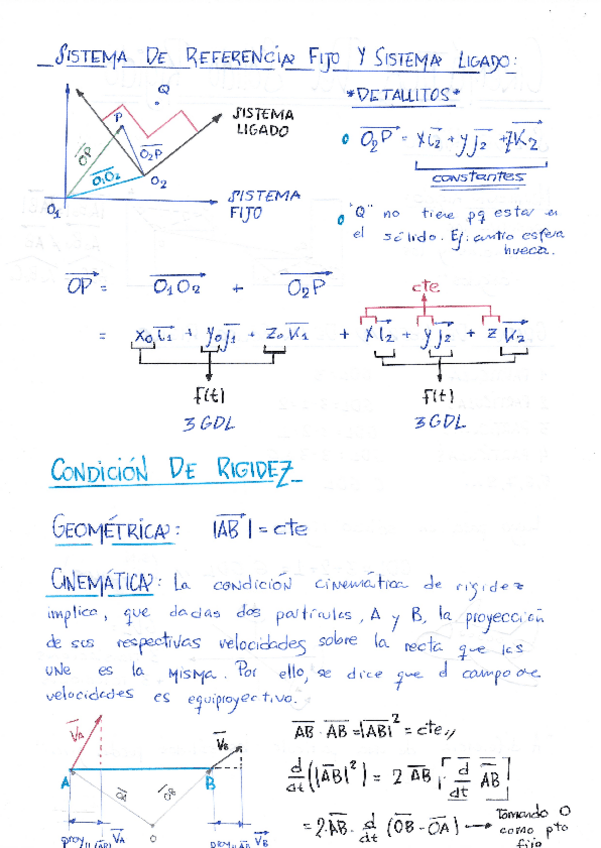 SISTEMA DE REFERENCIA FIJO Y SISTEMA LIGADO:
Q
P
SISTEMA
LIGADO
OP
O₂P
O₁O₂
O₂
O₁
SISTEMA
FIJO
*DETALLITOS*
O₂P = xi₂ + yj₂ + zk₂
constantes
"Q" no tiene pq estar en
el sólido. Ej: centro esfera
hueca.
OP = O₁O₂ + O₂P
cte
= x₀i₁ + y₀j₁ + z₀k₁ + xi₂ + yj₂ + zk₂
f(t) f(t)
3 GDL 3 GDL
CONDICIÓN DE RIGIDEZ
GEOMÉTRICA: |AB| = cte
CINEMÁTICA: La condición cinemática de rigidez
implica, que dadas dos partículas, A y B, la proyección
de sus respectivas velocidades sobre la recta que las
UNE es la MISMA. Por ello, se dice que el campo de
velocidades es equiproyectivo.
V_A
V_B
A
B
OA
OB
O
proy || (AB) V_A
proy || AB V_B
AB · AB = |AB|² = cte,,
d/dt (|AB|²) = 2 AB · [d/dt AB]
= 2·AB · d/dt (OB - OA) → Tomando O
como pto
fijo